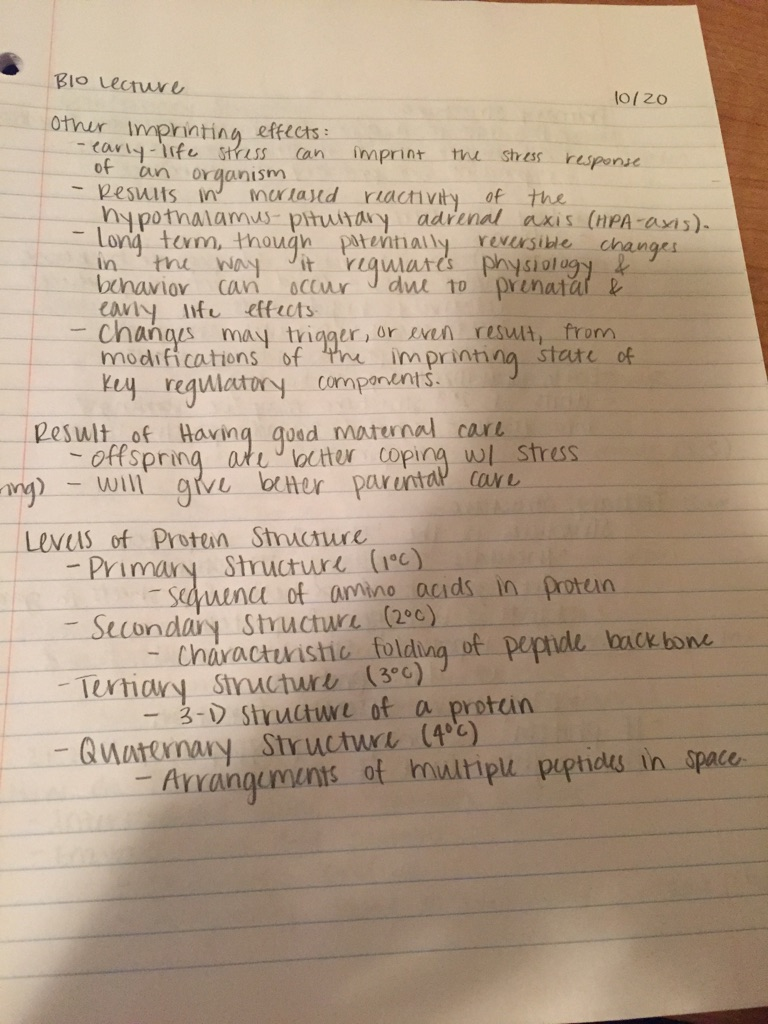 BIO Lecture
10/20
Other Imprinting effects:
- early-life stress can imprint the stress response
of an organism
- Results in increased reactivity of the
hypothalamus-pituitary adrenal axis (HPA-axis).
- long term, though potentially reversible changes
in the way it regulates physiology &
behavior can occur due to prenatal &
early life effects.
- changes may trigger, or even result, from
modifications of the imprinting state of
key regulatory components.
Result of Having good maternal care
- offspring are better coping w/ stress
- will give better parental care
Levels of Protein Structure
- Primary Structure (1°C)
- Sequence of amino acids in protein
- Secondary Structure (2°C)
- Characteristic folding of peptide backbone
- Tertiary Structure (3°C)
- 3-D Structure of a protein
- Quaternary Structure (4°C)
- Arrangements of multiple peptides in space.